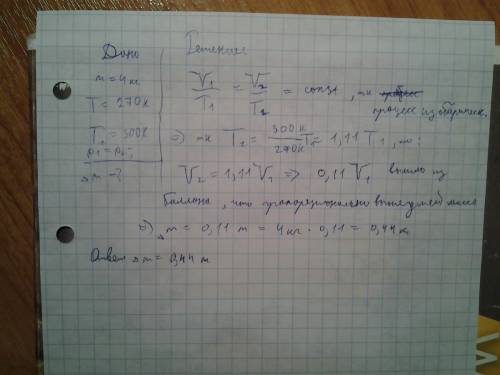 Дано
m = 4 кг
T = 270 К
T₂ = 300 К
p₁ = p₂
Δm - ?
Решение
V₁/T₁ = V₂/T₂ = const, тк
процесс изобарическ.
=> тк T₂ = 300К/270К T₁ = 1,11 T₁, то:
V₂ = 1,11 V₁ => 0,11 V₁ вышло из
баллона, что пропорционально вышедшей массе
Δm = 0,11 m = 4 кг · 0,11 = 0,44 кг
Ответ Δm = 0,44 m